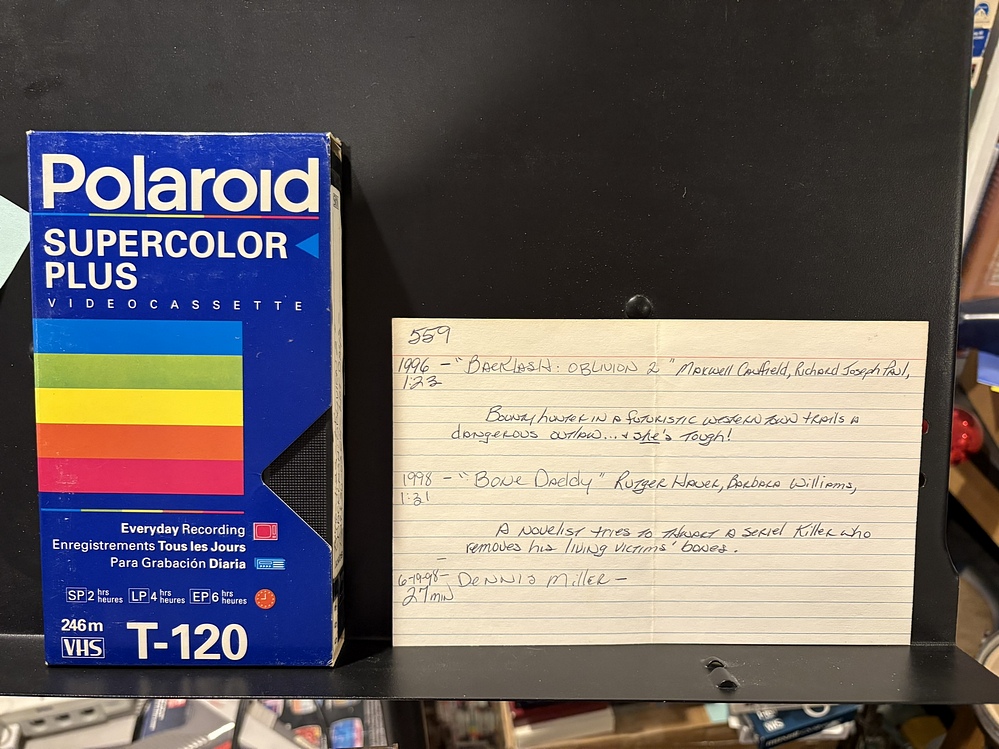 Polaroid
SUPERCOLOR
PLUS
VIDEOCASSETTE
Everyday Recording
Enregistrements Tous les Jours
Para Grabación Diaria
SP 2 hrs heures LP 4 hrs heures EP 6 hrs heures
246m
VHS T-120
559
1996 - "BACKLASH: OBLIVION 2" MAXWELL CAUFIELD, RICHARD JOSEPH PAUL,
1:23
BOUNTY HUNTER IN A FUTURISTIC WESTERN TOWN TRAILS A
dANGEROUS OUTLAW... + SHE'S TOUGH!
1998 - "BONE DADDY" RUTGER HAUER, BARBARA WILLIAMS,
1:31
A NOVELIST TRIES TO THWART A SERIEL KILLER WHO
REMOVES HIS LIVING VICTIMS' BONES.
6-19-98 - DENNIS MILLER -
27 MIN